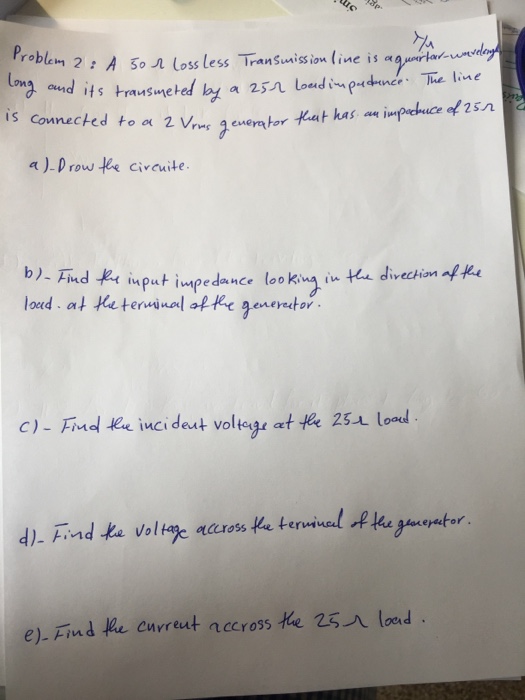 λ/4
Problem 2 : A 50 Ω Loss less Transmission line is a quarter-wavelength
long and its transmeted by a 25Ω load impedance. The line
is connected to a 2 Vrms generator that has an impedance of 25Ω
a)- Drow the circuite.
b)- Find the input impedance looking in the direction of the
load. at the terminal of the generator.
c)- Find the incident voltage at the 25Ω load.
d)- Find the Voltage accross the terminal of the generator.
e)- Find the current accross the 25Ω load.